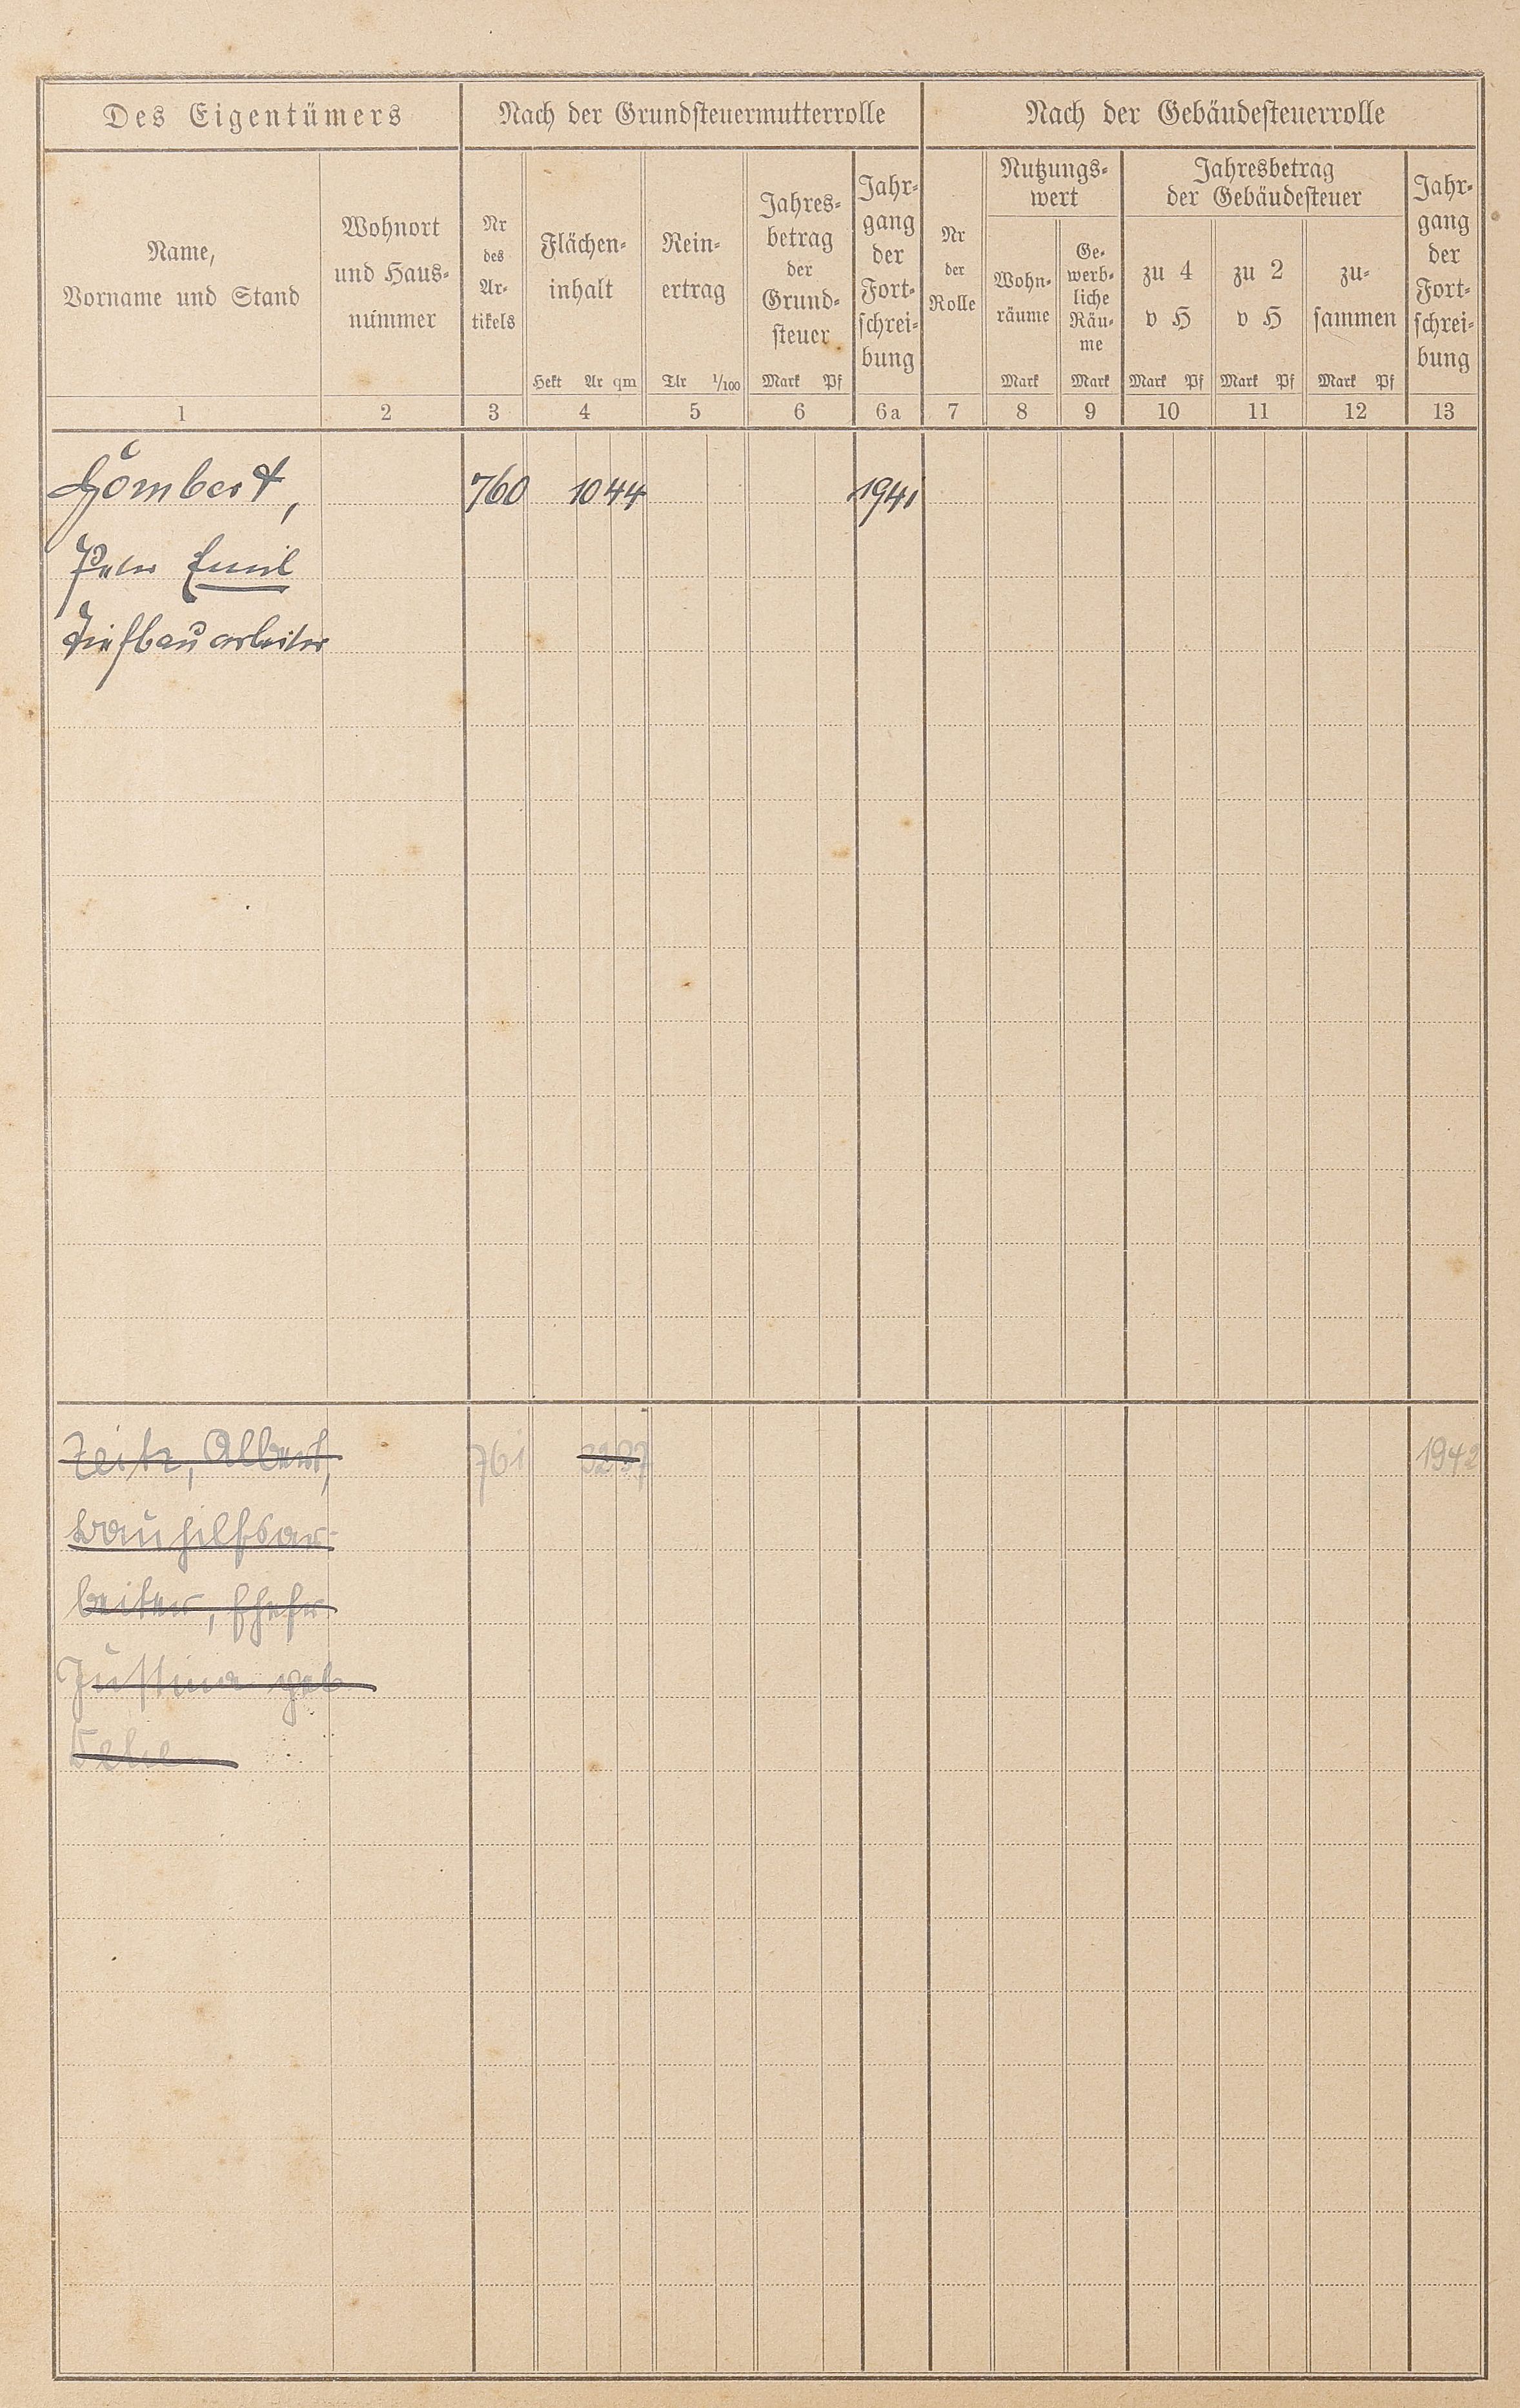 Des Eigentümers
Nach der Grundsteuermutterrolle
Nach der Gebäudesteuerrolle
Name,
Vorname und Stand
Wohnort
und Haus-
nummer
Nr
des
Ar-
tikels
Flächen-
inhalt
Hekt Ar qm
Rein-
ertrag
Tlr 1/100
Jahres-
betrag
der
Grund-
steuer
Mark Pf
Jahr-
gang
der
Fort-
schrei-
bung
Nr
der
Rolle
Nutzungs-
wert
Wohn-
räume
Mark
Ge-
werb-
liche
Räu-
me
Mark
Jahresbetrag
der Gebäudesteuer
zu 4
v H
Mark Pf
zu 2
v H
Mark Pf
zu-
sammen
Mark Pf
Jahr-
gang
der
Fort-
schrei-
bung
1 2 3 4 5 6 6a 7 8 9 10 11 12 13
Gömbert, 760 10 44 1941
Peter Emil
Tiefbauarbeiter
Zeitz, Albert, 761 32 37 1942
Bauhilfsar-
beiter, Ehefr.
Justina geb